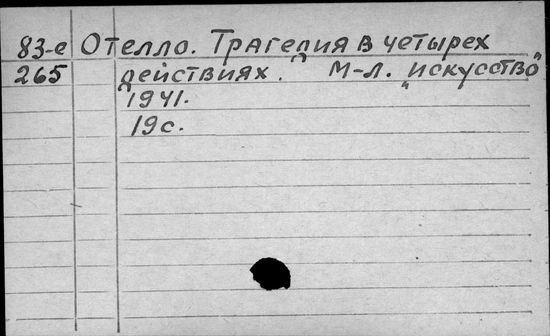 83-е Отелло. Трагедия в четырех
265 действиях. М-Л. "Искусство"
1941.
19 с.